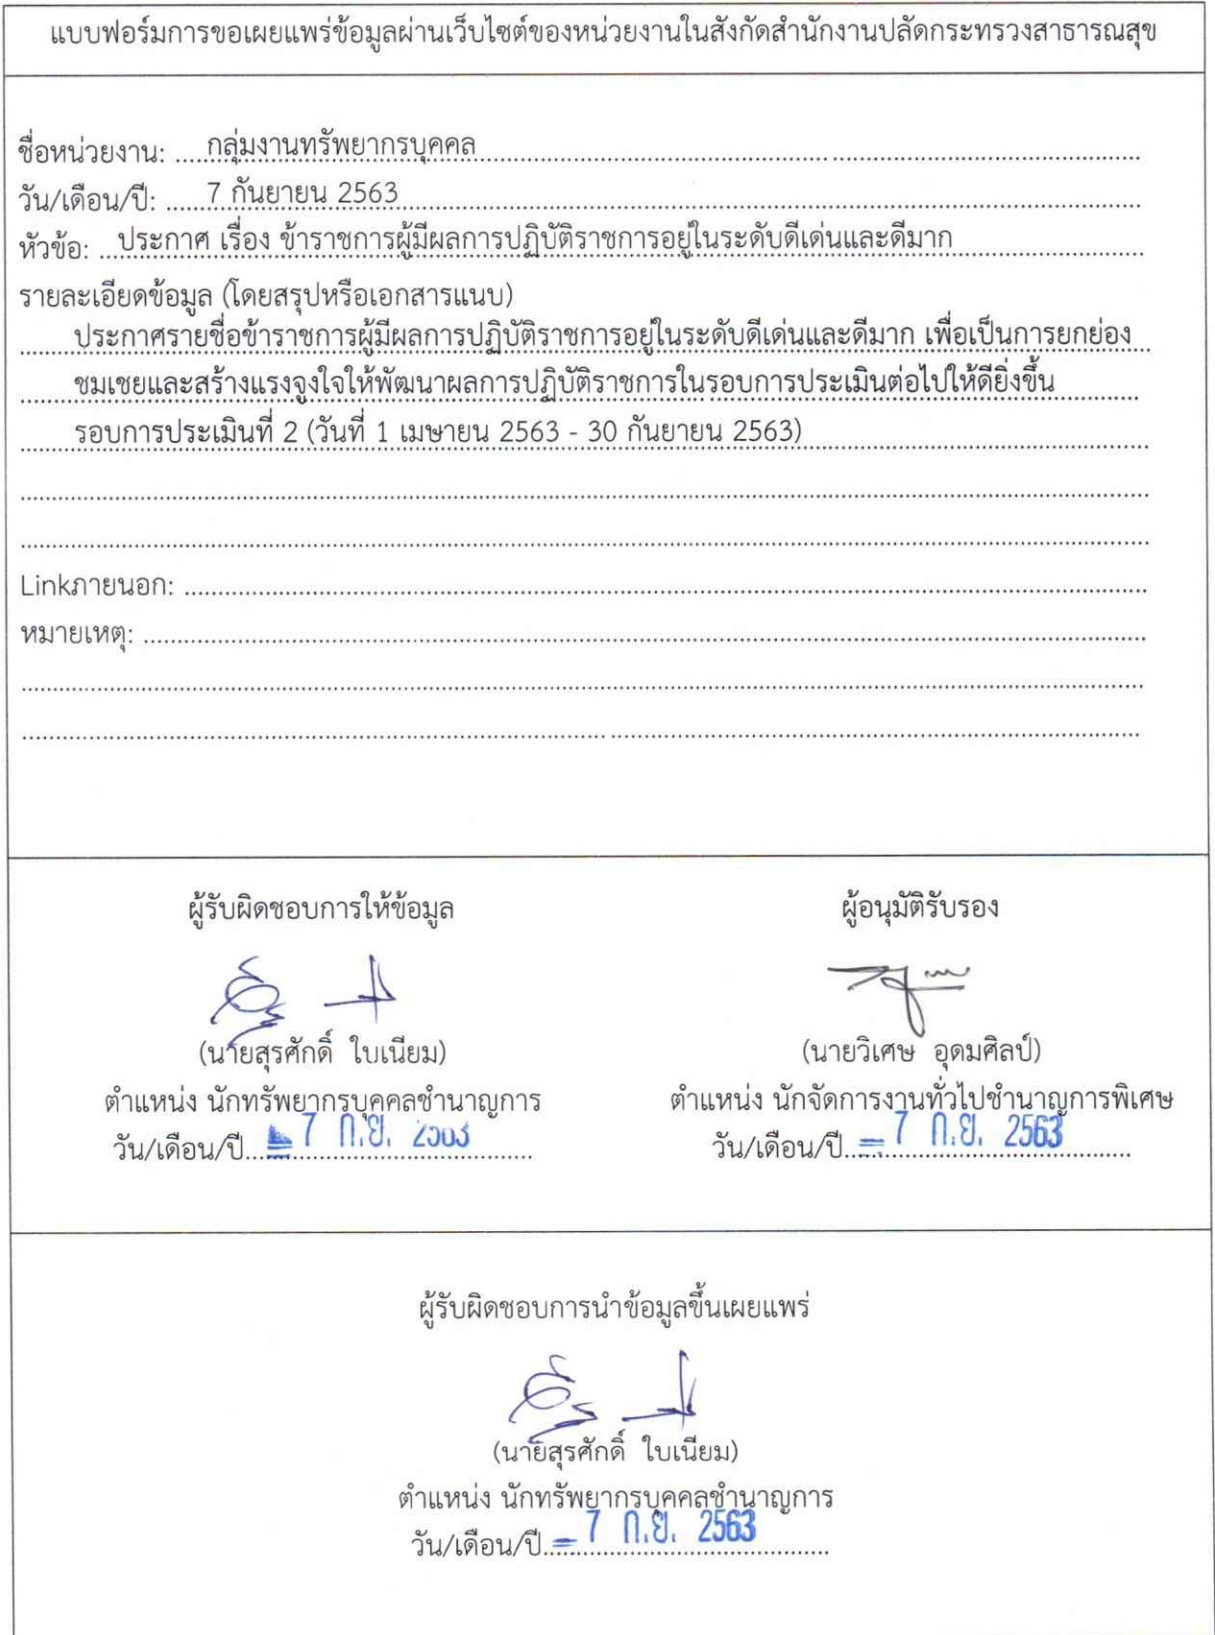 แบบฟอร์มการขอเผยแพร่ข้อมูลผ่านเว็บไซต์ของหน่วยงานในสังกัดสำนักงานปลัดกระทรวงสาธารณสุข
ชื่อหน่วยงาน: ....กลุ่มงานทรัพยากรบุคคล....
วัน/เดือน/ปี: ....7 กันยายน 2563....
หัวข้อ: ...ประกาศ เรื่อง ข้าราชการผู้มีผลการปฏิบัติราชการอยู่ในระดับดีเด่นและดีมาก....
รายละเอียดข้อมูล (โดยสรุปหรือเอกสารแนบ)
ประกาศรายชื่อข้าราชการผู้มีผลการปฏิบัติราชการอยู่ในระดับดีเด่นและดีมาก เพื่อเป็นการยกย่อง
ชมเชยและสร้างแรงจูงใจให้พัฒนาผลการปฏิบัติราชการในรอบการประเมินต่อไปให้ดียิ่งขึ้น
รอบการประเมินที่ 2 (วันที่ 1 เมษายน 2563 - 30 กันยายน 2563)
Linkภายนอก: ....
หมายเหตุ: ....
ผู้รับผิดชอบการให้ข้อมูล
(นายสุรศักดิ์ ใบเนียม)
ตำแหน่ง นักทรัพยากรบุคคลชำนาญการ
วัน/เดือน/ปี.... 7 ก.ย. 2563
ผู้อนุมัติรับรอง
(นายวิเศษ อุดมศิลป์)
ตำแหน่ง นักจัดการงานทั่วไปชำนาญการพิเศษ
วัน/เดือน/ปี.... 7 ก.ย. 2563
ผู้รับผิดชอบการนำข้อมูลขึ้นเผยแพร่
(นายสุรศักดิ์ ใบเนียม)
ตำแหน่ง นักทรัพยากรบุคคลชำนาญการ
วัน/เดือน/ปี.... 7 ก.ย. 2563